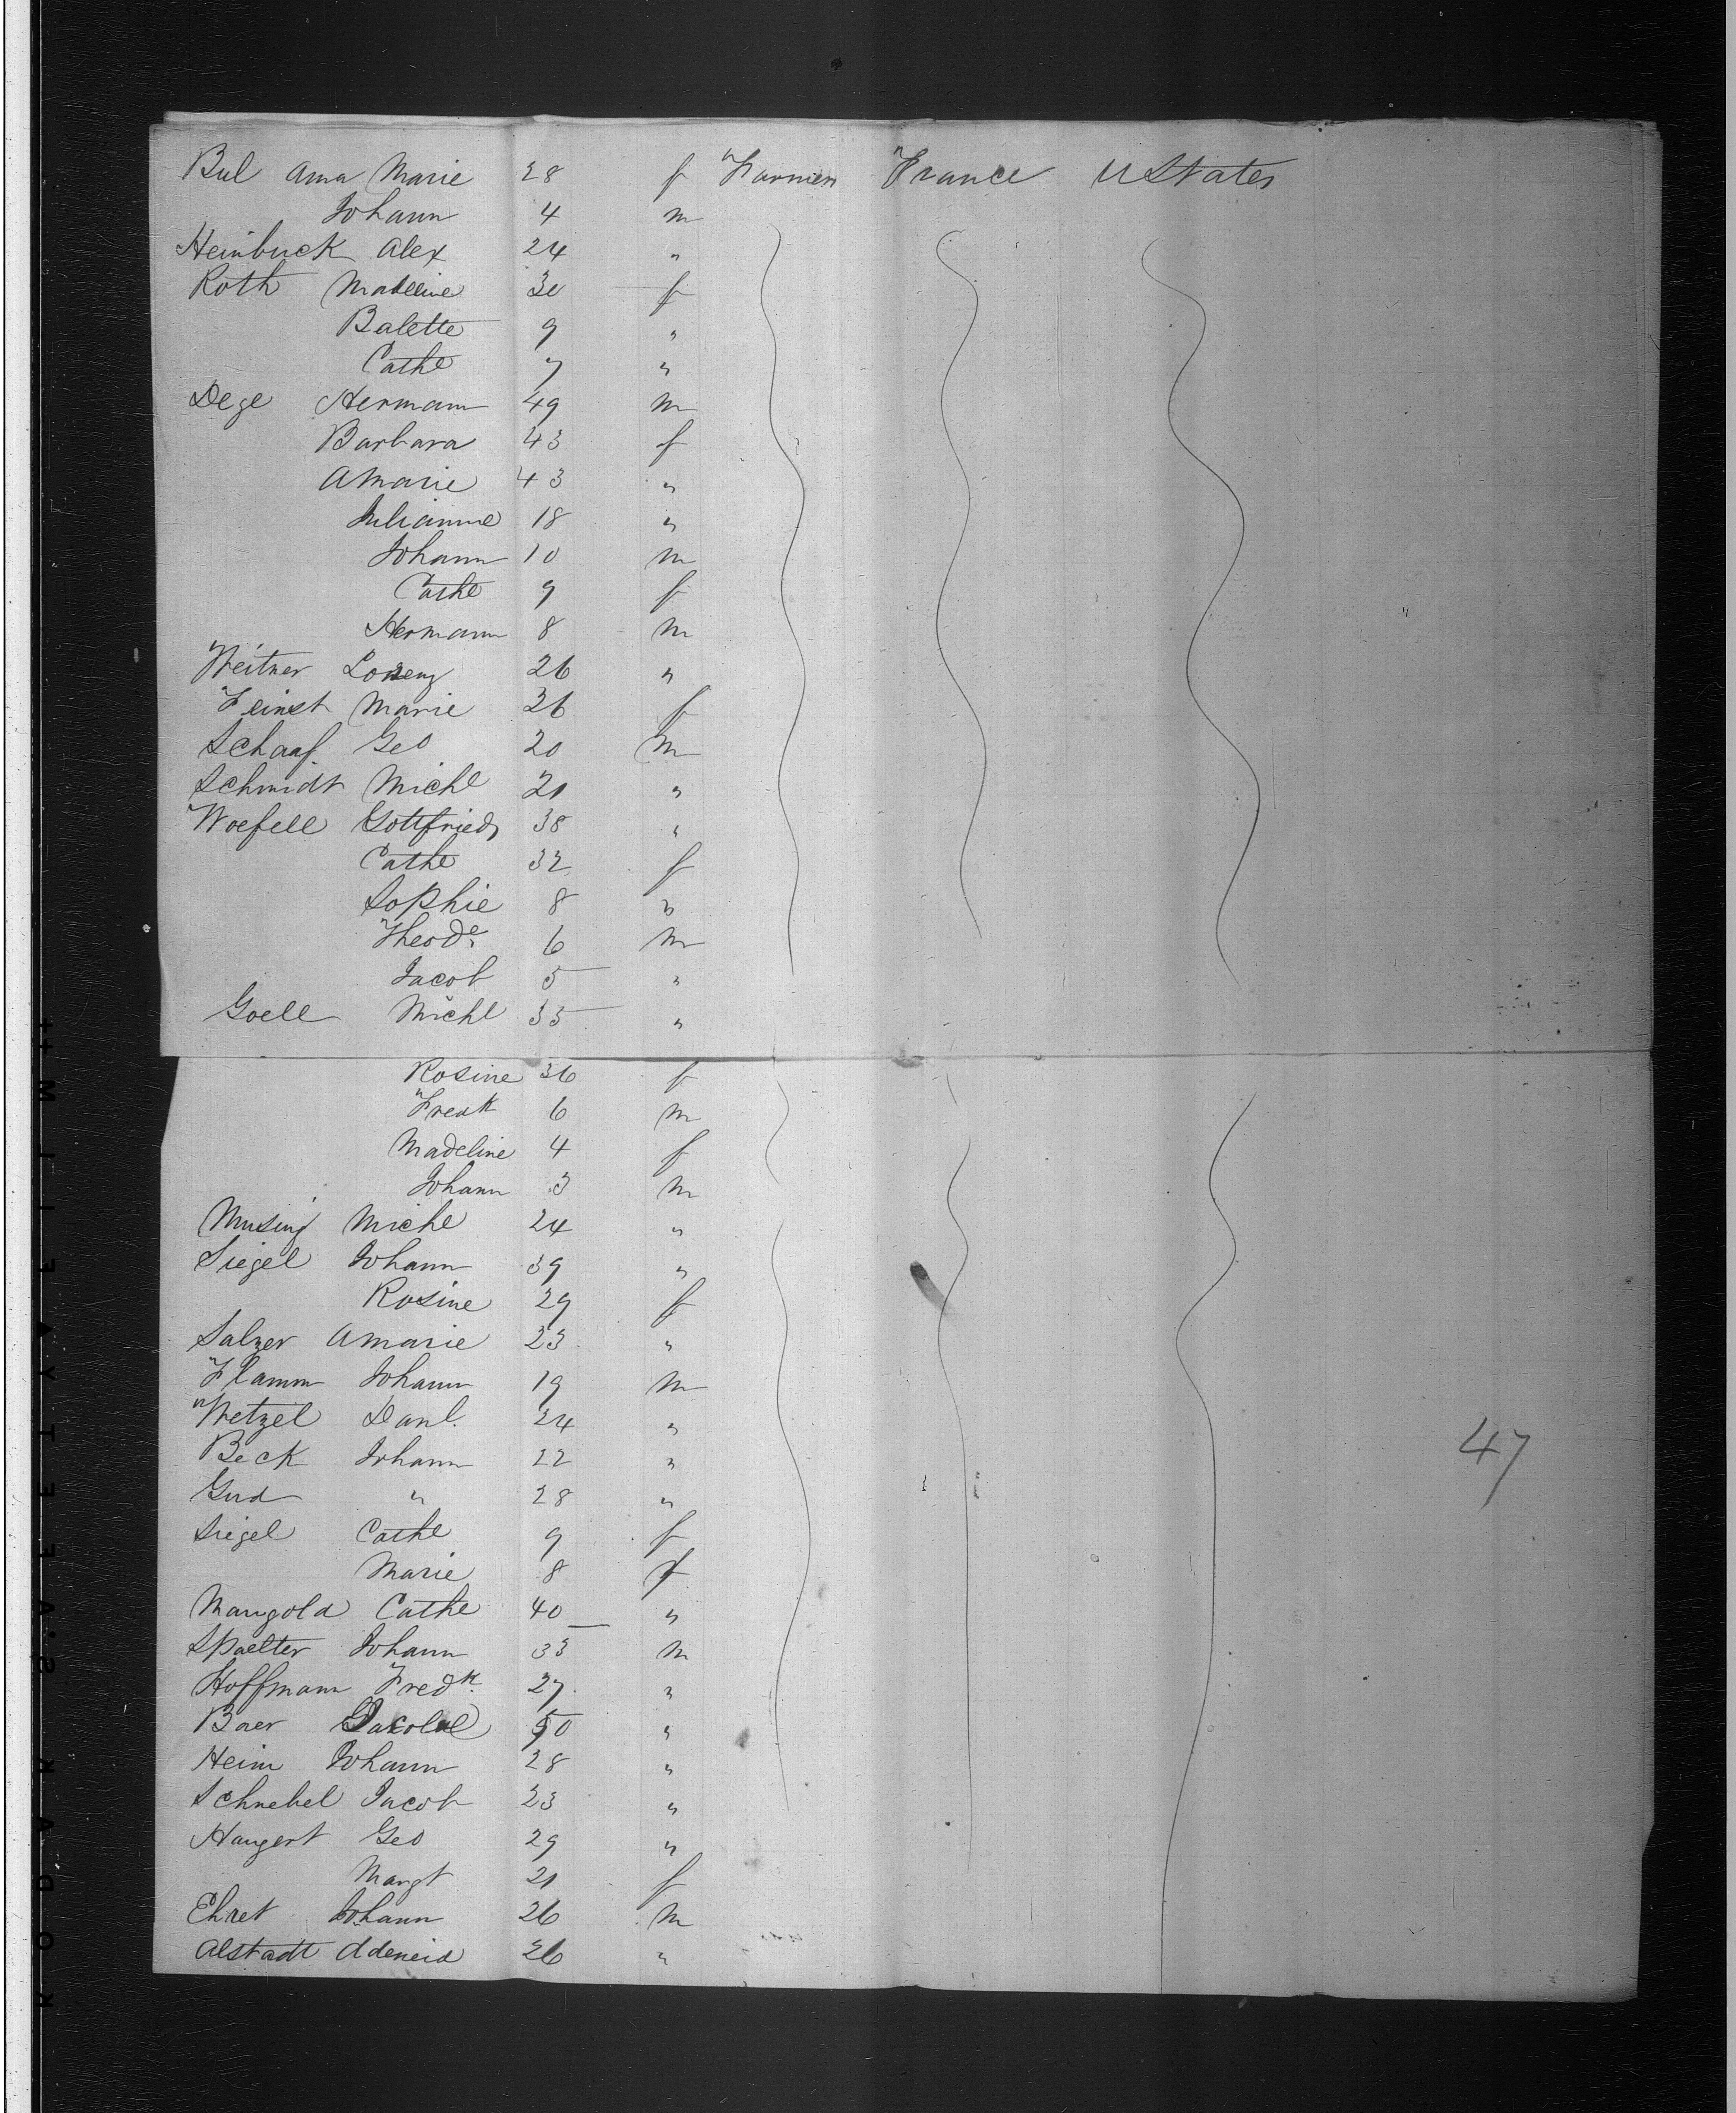 Bul Anna Marie 28 f Farmers France U States
Johann 4 m
Heinbuck Alex 24 "
Roth Madeline 30 f
Balette 9 "
Cathe 7 "
Dege Hermann 49 m
Barbara 43 f
A Marie 43 "
Julianne 18 "
Johann 10 m
Cathe 9 f
Hermann 8 m
Weitner Lorenz 26 "
Feinst Marie 36 f
Schaaf Geo 20 m
Schmidt Michl 21 "
Woefell Gottfried 38 "
Cathe 32 f
Sophie 8 "
Theodr 6 m
Jacob 5 "
Goell Michl 35 "
Rosine 36 f
Fredk 6 m
Madeline 4 f
Johann 3 m
Musing Michl 24 "
Siegel Johann 39 "
Rosine 29 f
Salzer A Marie 23 "
Flamm Johann 19 m
Wetzel Danl. 24 "
Beck Johann 22 "
Gud " 28 "
Siegel Cathe 9 f
Marie 8 f
Mangold Cathe 40 "
Spaelter Johann 35 m
Hoffmann Fredk 27 "
Baer 50 "
Heim Johann 28 "
Schnebel Jacob 23 "
Haugert Geo 29 "
Margt 21 f
Ehret Johann 26 m
Alstadt 26 "
47